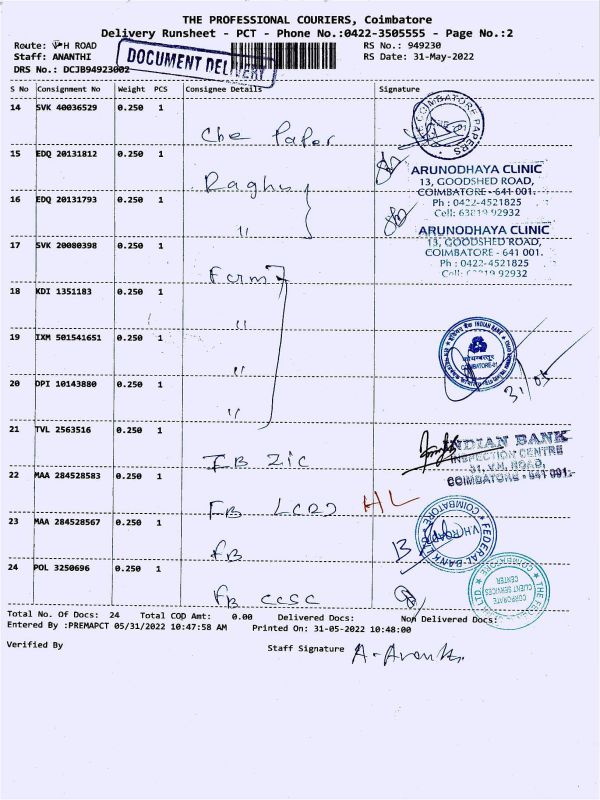 THE PROFESSIONAL COURIERS, Coimbatore
Delivery Runsheet - PCT - Phone No.:0422-3505555 - Page No.:2
Route: V H ROAD
RS No.: 949230
Staff: ANANTHI
RS Date: 31-May-2022
DRS No.: DCJB94923002
DOCUMENT DELIVERY
S No Consignment No Weight PCS Consignee Details Signature
14 SVK 40036529 0.250 1
Cbe Paper
COIMBATORE PAPERS
15 EDQ 20131812 0.250 1
Raghu
ARUNODHAYA CLINIC
13, GOODSHED ROAD,
COIMBATORE - 641 001.
Ph : 0422-4521825
Cell: 63819 92932
16 EDQ 20131793 0.250 1
"
ARUNODHAYA CLINIC
13, GOODSHED ROAD,
COIMBATORE - 641 001.
Ph : 0422-4521825
Cell: 63819 92932
17 SVK 20080398 0.250 1
18 KDI 1351183 0.250 1
"
19 IXM 501541651 0.250 1
"
INDIAN BANK
COIMBATORE-01
31/05
20 DPI 10143880 0.250 1
"
21 TVL 2563516 0.250 1
IB ZIC
INDIAN BANK
INSPECTION CENTRE
31, V.H. ROAD,
COIMBATORE - 641 001.
22 MAA 284528583 0.250 1
FB
HL
23 MAA 284528567 0.250 1
FB
FEDERAL BANK
V.H. ROAD
COIMBATORE
24 POL 3250696 0.250 1
FB CCSC
CORPORATE
CLIENT SERVICES
CENTER
COIMBATORE
Total No. Of Docs: 24 Total COD Amt: 0.00 Delivered Docs: Non Delivered Docs:
Entered By :PREMAPCT 05/31/2022 10:47:58 AM Printed On: 31-05-2022 10:48:00
Verified By
Staff Signature